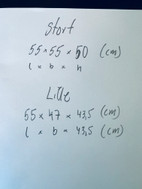 Stort
55 x 55 x 50 (cm)
l x b x h
Lille
55 x 47 x 43,5 (cm)
l x b x 43,5 (cm)